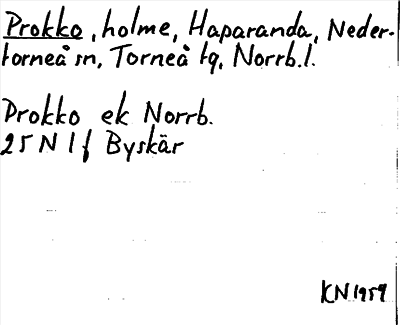 Prokko, holme, Haparanda, Neder-
torneå sn, Torneå tg, Norrb.l.
Prokko ek Norrb.
25 N 1 f Byskär
KN 1959